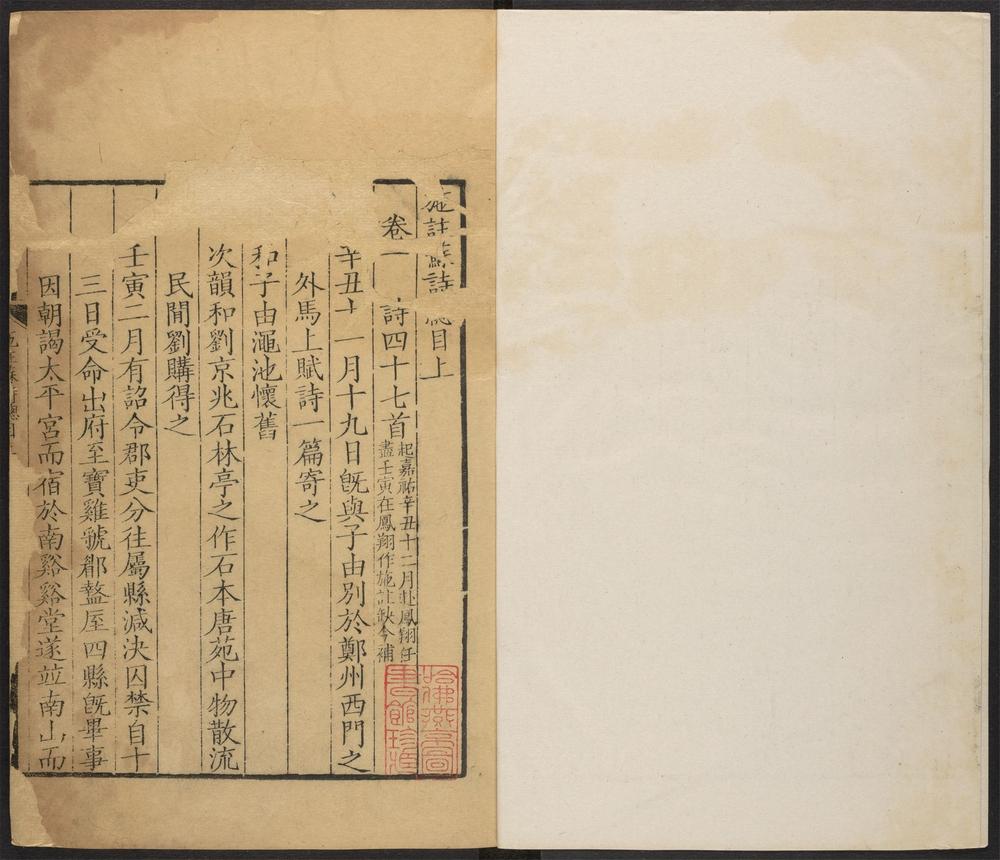 施註蘇詩總目上
卷一 詩四十七首
起嘉祐辛丑十二月赴鳳翔任
盡壬寅在鳳翔作施註缺今補
辛丑十一月十九日旣與子由別於鄭州西門之
外馬上賦詩一篇寄之
和子由澠池懷舊
次韻和劉京兆石林亭之作石本唐苑中物散流
民間劉購得之
壬寅二月有詔令郡吏分往屬縣減決囚禁自十
三日受命出府至寶雞虢郿盩厔四縣旣畢事
因朝謁太平宮而宿於南谿谿堂遂竝南山而
哈佛燕京圖
書館珍藏